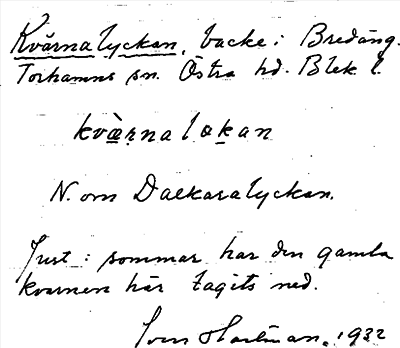 Kvärnalyckan, backe i Bredäng.
Torhamns sn. Östra hd. Blek l.
kvæ̀ṛnalækan
N. om Dackaralyckan.
Just i sommar har den gamla
kvarnen här tagits ned.
Sven Hartman. 1932